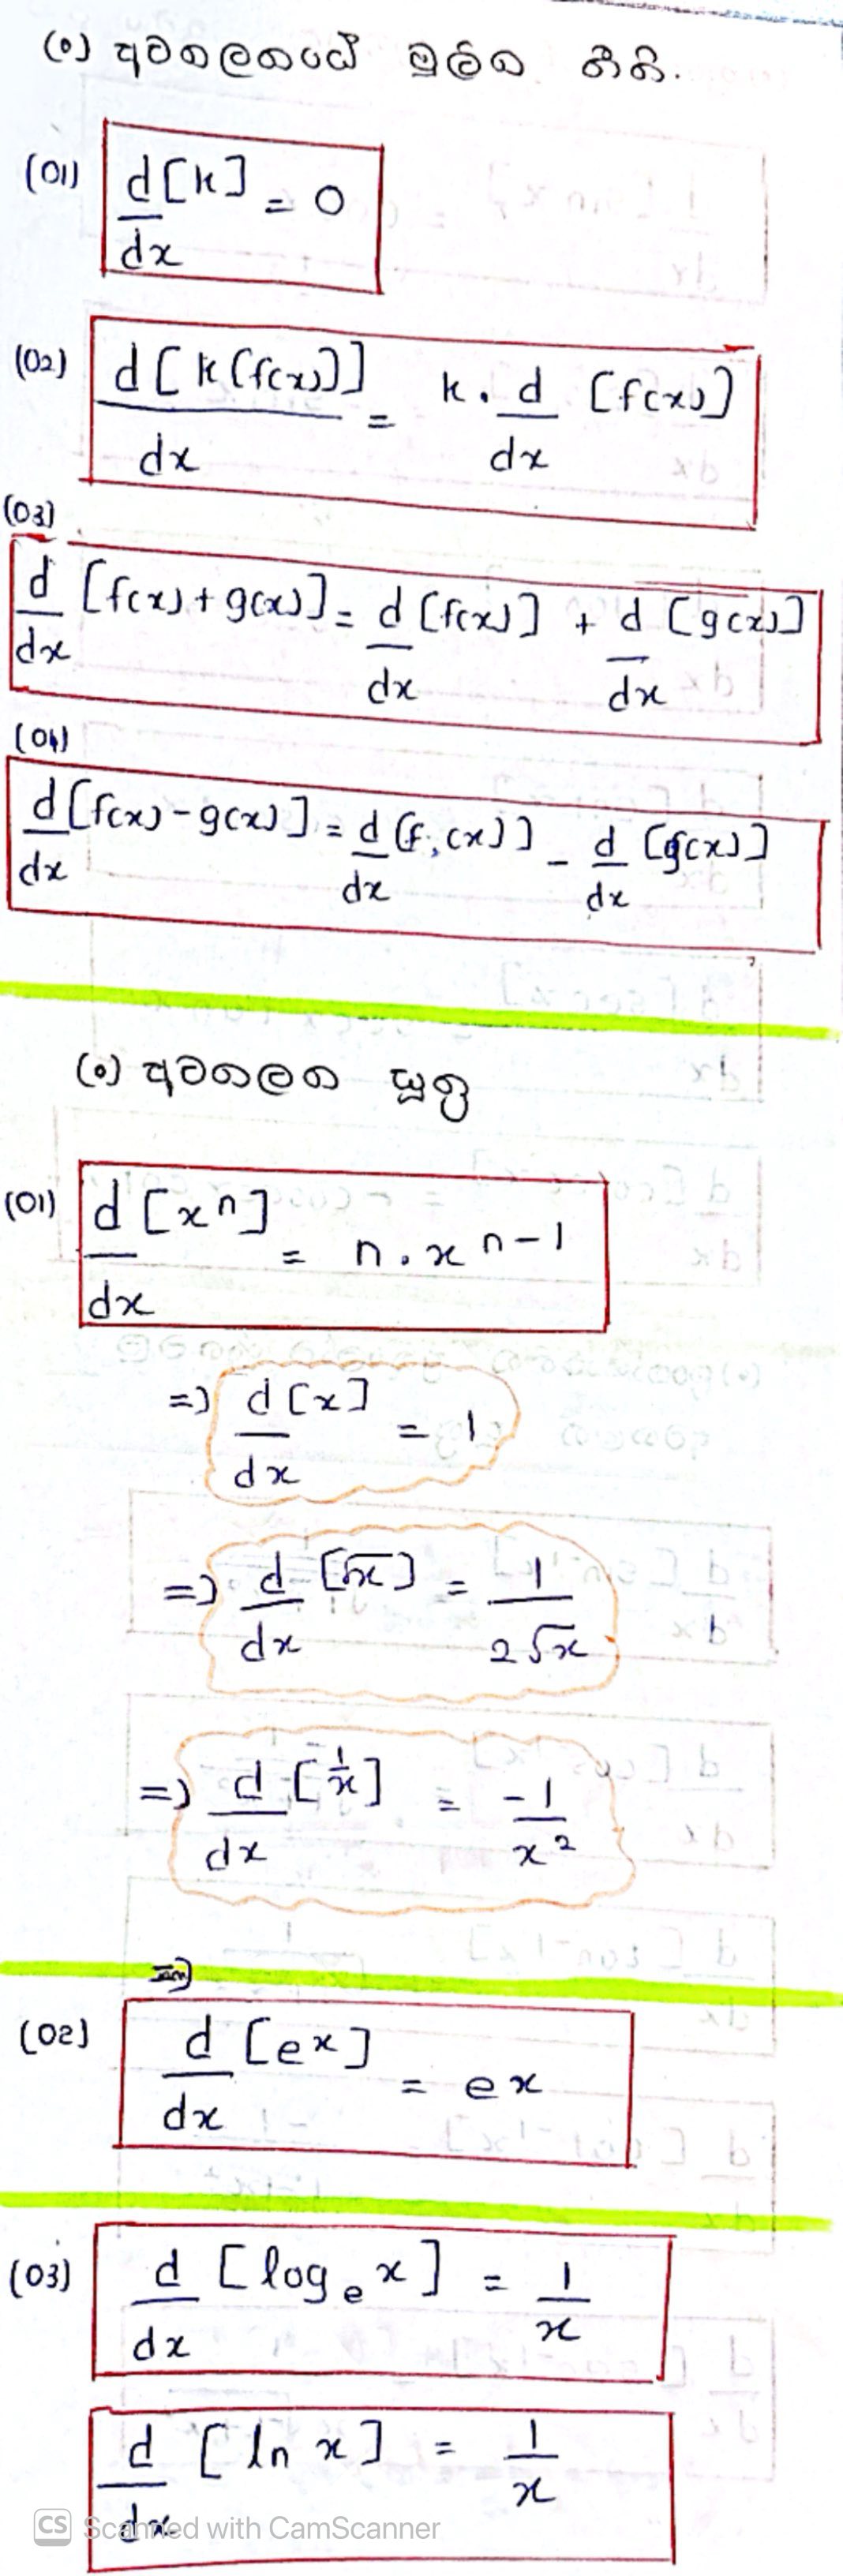 (०) අවකලනයේ මූලික නීති.
(01) d/dx [k] = 0
(02) d[k(f(x))]/dx = k . d/dx [f(x)]
(03)
d/dx [f(x) + g(x)] = d/dx [f(x)] + d/dx [g(x)]
(04)
d/dx [f(x) - g(x)] = d/dx [f(x)] - d/dx [g(x)]
(०) අවකලන සූත්‍ර
(01) d/dx [xⁿ] = n . xⁿ⁻¹
=> d/dx [x] = 1
=> d/dx [√x] = 1/2√x
=> d/dx [1/x] = -1/x²
(02) d/dx [eˣ] = eˣ
(03) d/dx [logₑ x] = 1/x
d/dx [ln x] = 1/x
CS Scanned with CamScanner